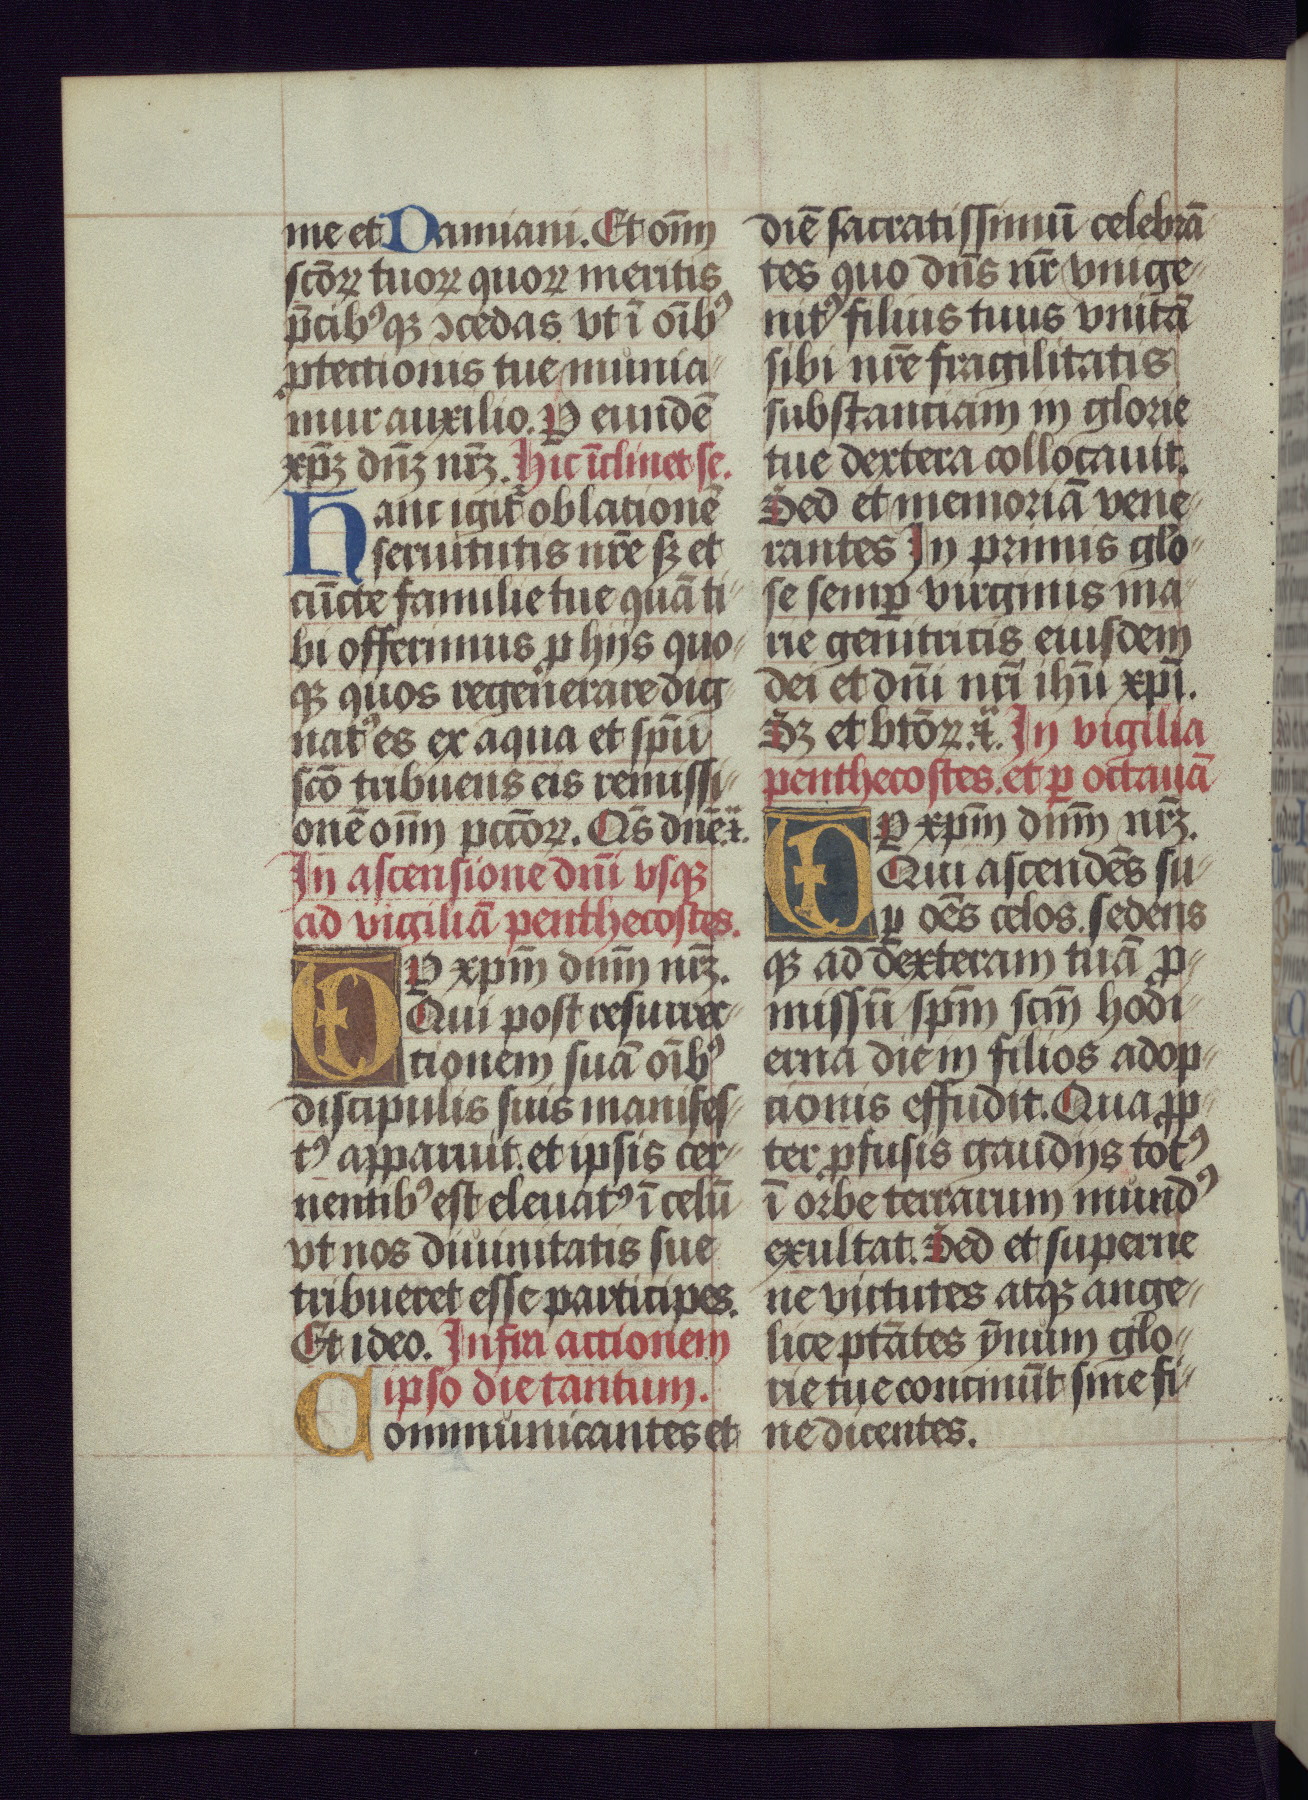 me et Damiani. Et om̄
sc̄oꝝ tuoꝝ quoꝝ meritis
p̄cibꝰqꝫ ↄcedas vt ī oībꝰ
ꝓtectionis tue munia
mur auxilio. P eundē
xp̄ꝫ dn̄ꝫ nr̄ꝫ. Hic īclinet se.
Hanc igit̄ oblationē
seruitutis nr̄e sꝫ et
cūcte familie tue quā ti
bi offerimus ꝓ hijs quo
qꝫ quos regenerare dig
natꝰ es ex aqua et sp̄u
sc̄o tribuens eis remissi
onē om̄ pcc̄oꝝ. Q̄s dn̄e.
In ascensione dn̄i vsqꝫ
ad vigiliā penthecostes.
P xp̄m dn̄m nr̄ꝫ.
Qui post resurrec
tionem suā oībꝰ
discipulis suis manifes
tꝰ apparuit. et ipsis cer
nentibꝰ est eleuatꝰ ī celū
vt nos diuinitatis sue
tribueret esse participes.
Et ideo. Infra actionem
ipso die tantum.
Communicantes et
diē sacratissimū celebrā
tes quo dn̄s nr̄ vnige
nitꝰ filius tuus vnitā
sibi nr̄e fragilitatis
substanciam in glorie
tue dextera collocauit.
Sed et memoriā vene
rantes In primis glo
se semꝑ virginis ma
rie genitricis eiusdem
dei et dn̄i nr̄i ihū xp̄i.
Sꝫ et btōꝝ. In vigilia
penthecostes. et ꝑ octauā
P xp̄m dn̄m nr̄ꝫ.
Qui ascendēs su
ꝑ oēs celos. sedens
qꝫ ad dexteram tuā ꝓ
missū sp̄m sc̄m hodi
erna die in filios adop
cionis effudit. Qua ꝓp
ter ꝓfusis gaudijs totꝰ
ī orbe terrarum mundꝰ
exultat. Sed et superne
ne virtutes atqꝫ ange
lice ptātes ȳnum glo
rie tue concinūt sine fi
ne dicentes.